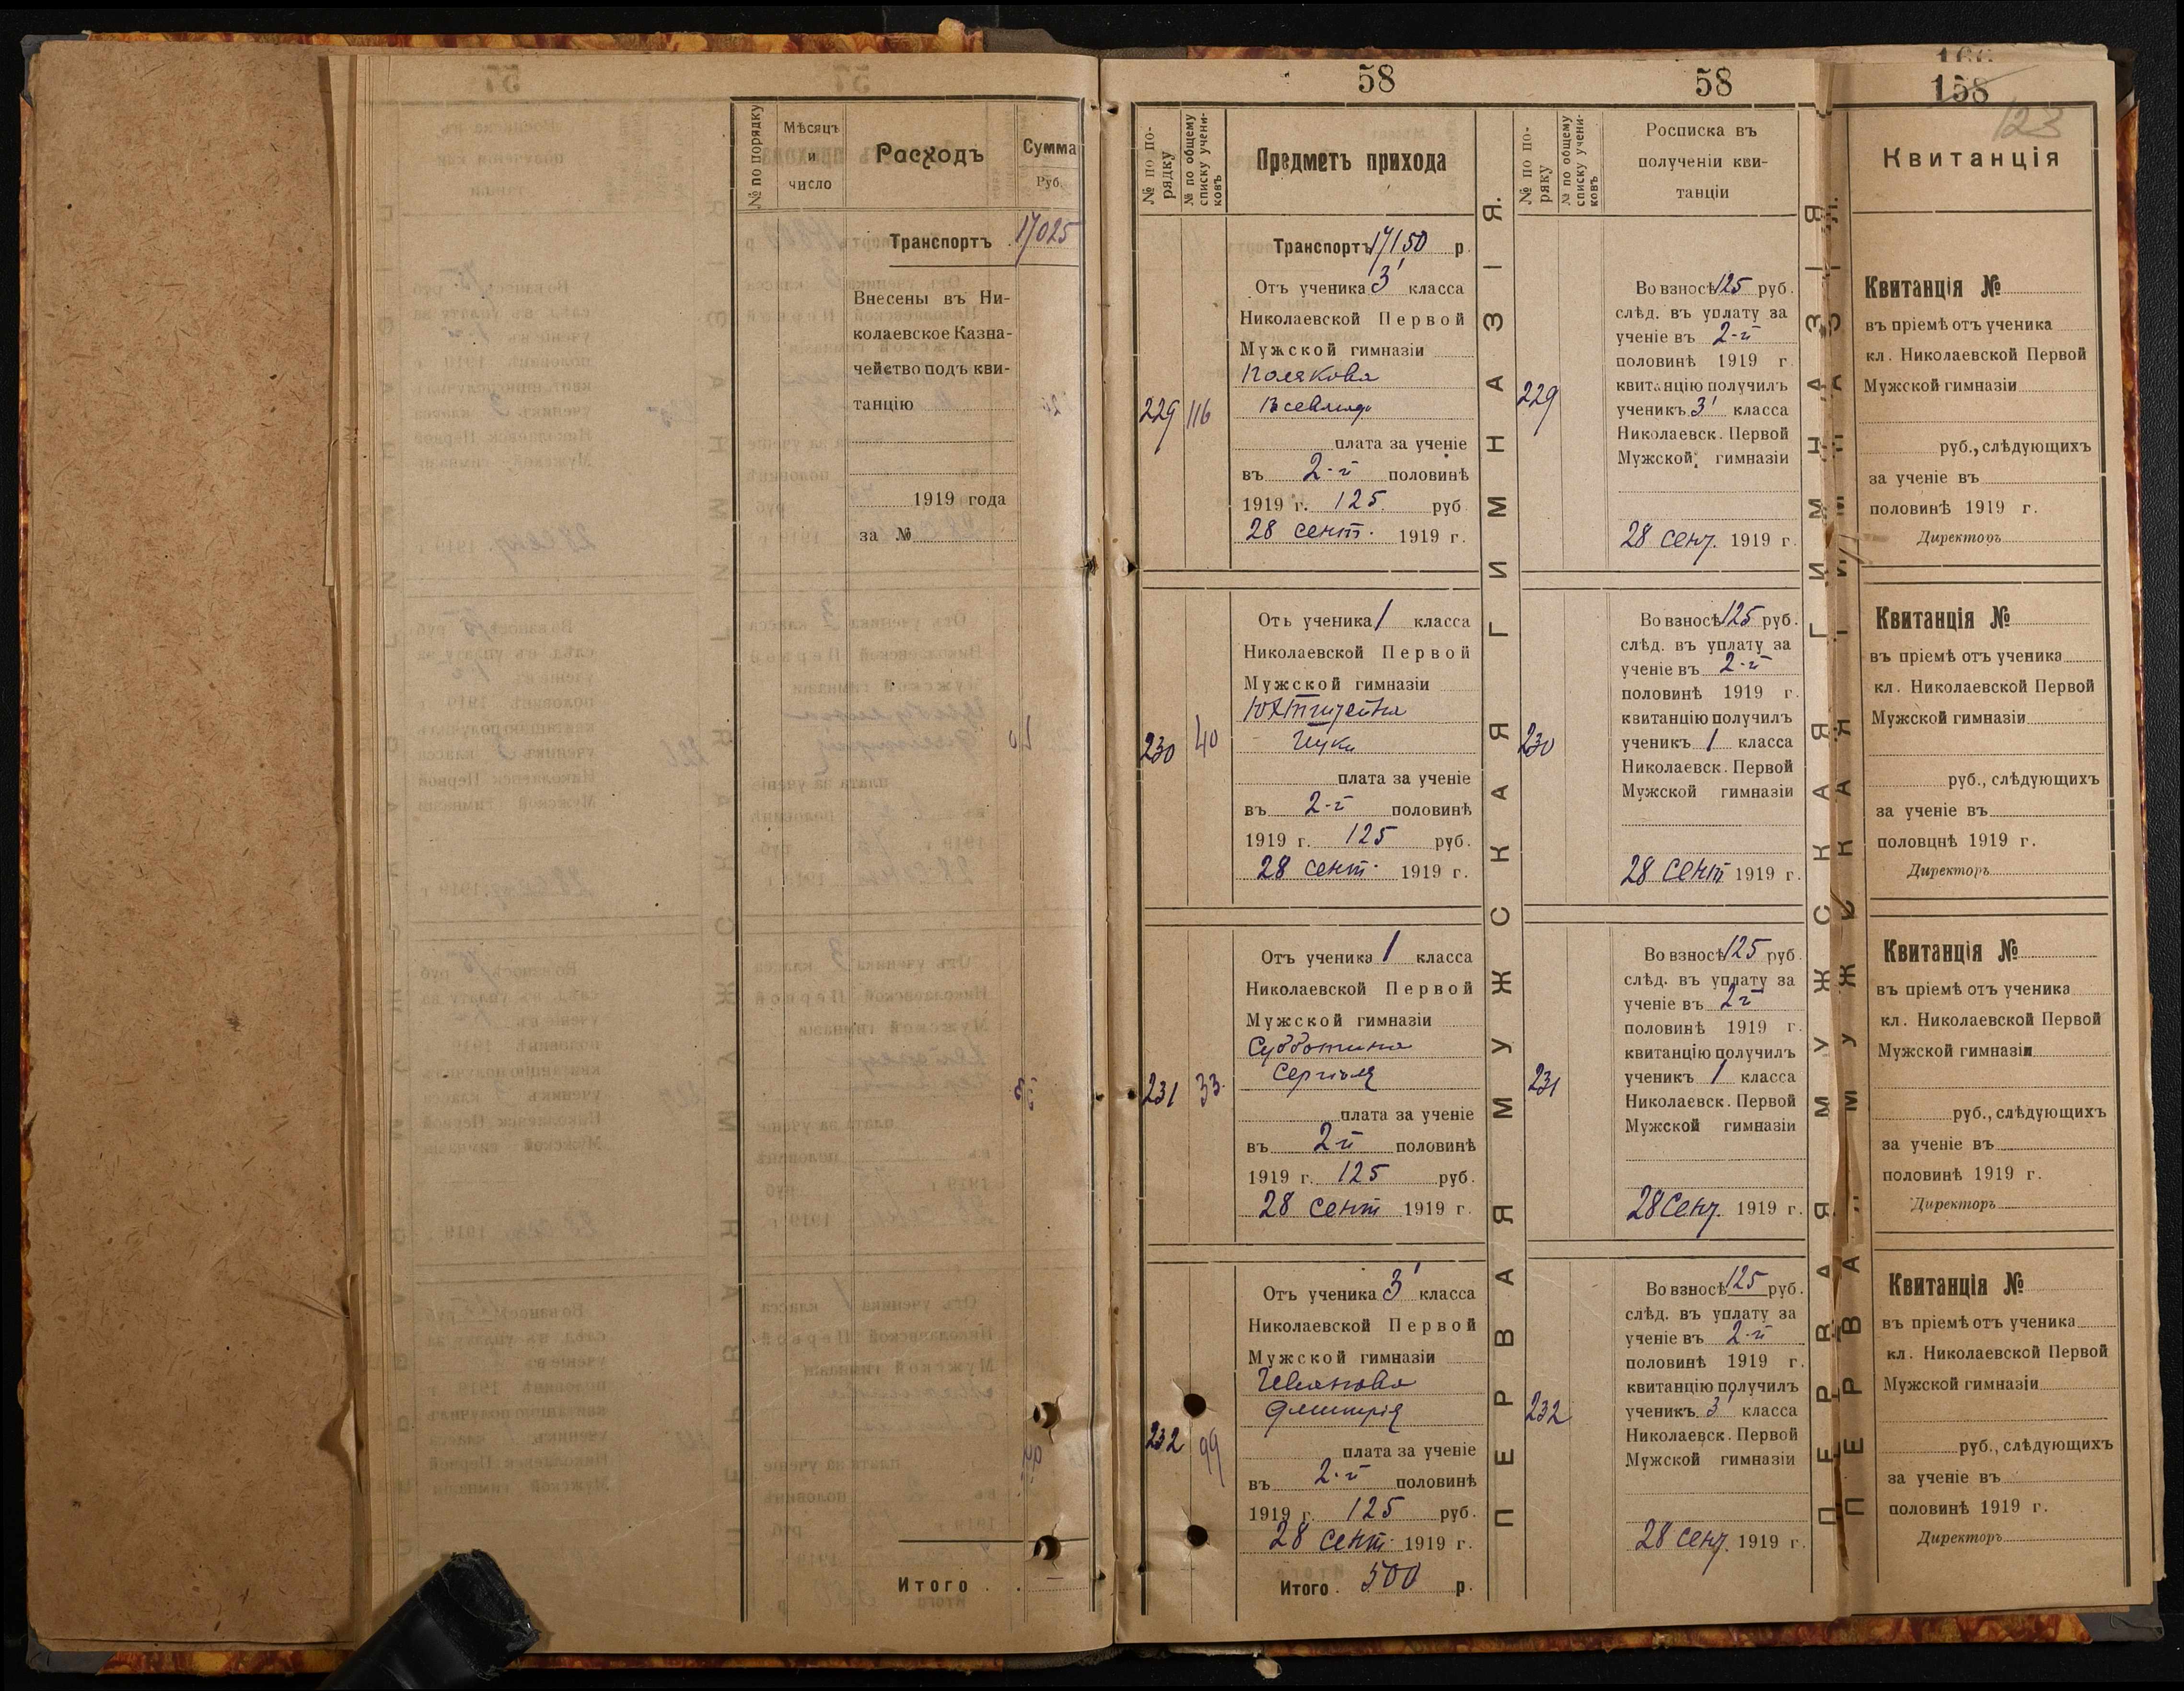 № по порядку
Мѣсяцъ
и
число
Расходъ
Сумма
Руб.
Транспортъ 17025
Внесены въ Ни-
колаевское Казна-
чейство подъ кви-
танцію
1919 года
за №
Итого .
58
№ по по-
рядку
№ по общему
списку учени-
ковъ
Предметъ прихода
Транспортъ 17150 р
229 116
Отъ ученика 3' класса
Николаевской Первой
Мужской гимназіи
Полякова
Всеволода
плата за ученіе
въ 2-й половинѣ
1919 г. 125 руб
28 сент. 1919 г.
230 40
Отъ ученика 1 класса
Николаевской Первой
Мужской гимназіи
плата за ученіе
въ 2-й половинѣ
1919 г. 125 руб.
28 сент. 1919 г.
231 33
Отъ ученика 1 класса
Николаевской Первой
Мужской гимназіи
Субботина
Сергѣя
плата за ученіе
въ 2й половинѣ
1919 г. 125 руб.
28 сент 1919 г.
232 99
Отъ ученика 3' класса
Николаевской Первой
Мужской гимназіи
Иванова
Дмитрія
плата за ученіе
въ 2-й половинѣ
1919 г. 125 руб.
28 сент. 1919 г.
Итого . 500 р.
ПЕРВАЯ МУЖСКАЯ ГИМНАЗІЯ.
58
№ по по-
ряку
№ по общему
списку учени-
ковъ
Росписка въ
полученіи кви-
танціи
229
Во взносѣ 125 руб.
слѣд. въ уплату за
ученіе въ 2-й
половинѣ 1919 г.
квитанцію получилъ
ученикъ 3' класса
Николаевск. Первой
Мужской гимназіи
28 сент. 1919 г.
230
Во взносѣ 125 руб.
слѣд. въ уплату за
ученіе въ 2-й
половинѣ 1919 г.
квитанцію получилъ
ученикъ 1 класса
Николаевск. Первой
Мужской гимназіи
28 сент 1919 г.
231
Во взносѣ 125 руб.
слѣд. въ уплату за
ученіе въ 2й
половинѣ 1919 г.
квитанцію получилъ
ученикъ 1 класса
Николаевск. Первой
Мужской гимназіи
28 сент. 1919 г.
232
Во взносѣ 125 руб.
слѣд. въ уплату за
ученіе въ 2-й
половинѣ 1919 г.
квитанцію получилъ
ученикъ 3' класса
Николаевск. Первой
Мужской гимназіи
28 сент. 1919 г.
ПЕРВАЯ МУЖСКАЯ ГИМНАЗІЯ
166
158
123
Квитанція
Квитанція №
въ пріемѣ отъ ученика
кл. Николаевской Первой
Мужской гимназіи
руб., слѣдующихъ
за ученіе въ
половинѣ 1919 г.
Директоръ
Квитанція №
въ пріемѣ отъ ученика
кл. Николаевской Первой
Мужской гимназіи
руб., слѣдующихъ
за ученіе въ
половцнѣ 1919 г.
Директоръ
Квитанція №
въ пріемѣ отъ ученика
кл. Николаевской Первой
Мужской гимназіи
руб., слѣдующихъ
за ученіе въ
половинѣ 1919 г.
Директоръ
Квитанція №
въ пріемѣ отъ ученика
кл. Николаевской Первой
Мужской гимназіи
руб., слѣдующихъ
за ученіе въ
половинѣ 1919 г.
Директоръ